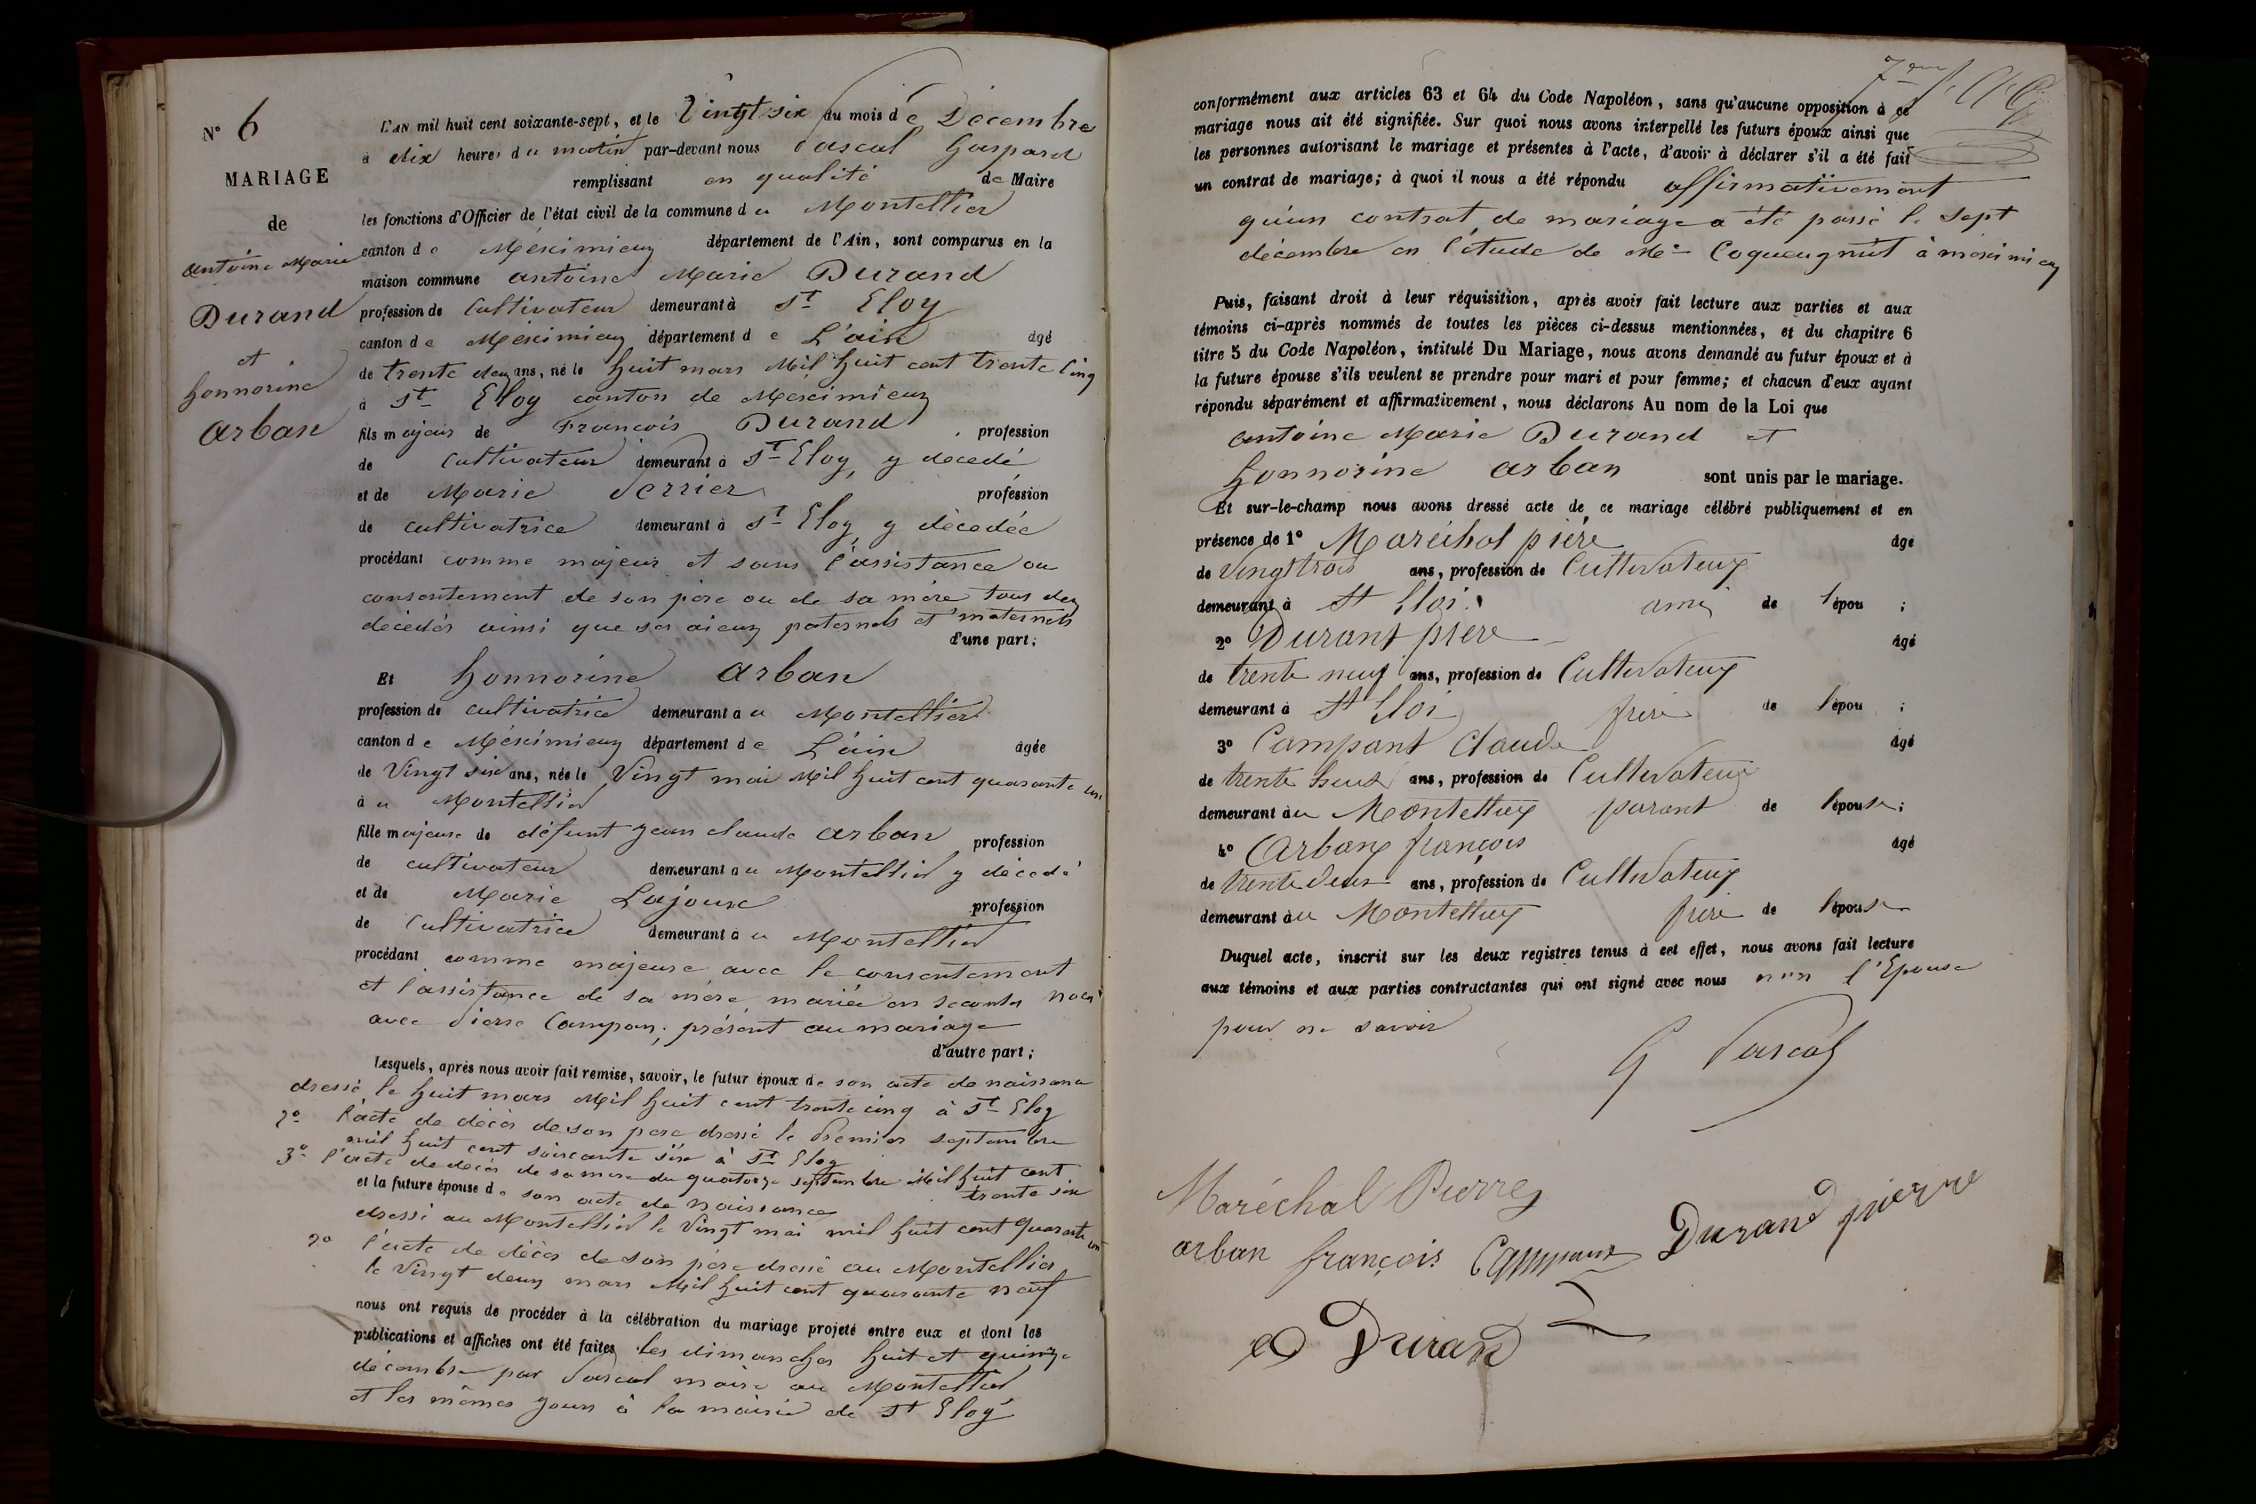 N° 6
MARIAGE
de
antoine Marie
Durand
et
honnorine
arban
L'AN mil huit cent soixante-sept, et le Vingt six du mois de Décembre
à dix heures du matin par-devant nous Pascal Gaspard
remplissant en qualité de Maire
les fonctions d'Officier de l'état civil de la commune du Montellier
canton de Meximieux département de l'Ain, sont comparus en la
maison commune antoine Marie Durand
profession de Cultivateur demeurant à St Eloy
canton de Meximieux département de L'ain âgé
de trente deux ans, né le huit mars Mil huit cent trente cinq
à St Eloy canton de Meximieux
fils majeur de François Durand, profession
de cultivateur demeurant à St Eloy, y décédé
et de Marie Perrier profession
de cultivatrice demeurant à St Eloy, y décédée
procédant comme majeur et sans l'assistance ou
consentement de son père ou de sa mère tous deux
décédés ainsi que ses aieux paternels et maternels
d'une part;
Et honnorine arban
profession de cultivatrice demeurant au Montellier
canton de Meximieux département de L'ain âgée
de Vingt six ans, née le Vingt mai Mil huit cent quarante un
à u Montellier
fille majeure de défunt jean claude arban profession
de cultivateur demeurant au Montellier y décédé
et de Marie Lajoux profession
de Cultivatrice demeurant au Montellier
procédant comme majeure avec le consentement
et l'assistance de sa mère mariée en secondes noces
avec Pierre Campan, présent au mariage
d'autre part;
Lesquels, après nous avoir fait remise, savoir, le futur époux de son acte de naissance
dressé le huit mars Mil huit cent trente cinq à St Eloy
2° l'acte de décès de son père dressé le Premier septembre
mil huit cent soixante six à St Eloy
3° l'acte de décès de sa mère du quatorze septembre Mil huit cent
trente six
et la future épouse de son acte de naissance
dressé au Montellier le Vingt mai mil huit cent quarante un
2° l'acte de décès de son père dressé au Montellier
le Vingt deux mars Mil huit cent quarante neuf
nous ont requis de procéder à la célébration du mariage projeté entre eux et dont les
publications et affiches ont été faites les dimanches huit et quinze
décembre par Pascal maire au Montellier
et les mêmes jours à la mairie de St Eloy
conformément aux articles 63 et 64 du Code Napoléon, sans qu'aucune opposition à ce
mariage nous ait été signifiée. Sur quoi nous avons interpellé les futurs époux ainsi que
les personnes autorisant le mariage et présentes à l'acte, d'avoir à déclarer s'il a été fait
un contrat de mariage; à quoi il nous a été répondu affirmativement
qu'un contrat de mariage a été passé le sept
décembre en l'étude de Me Coqueugniot à meximieux
Puis, faisant droit à leur réquisition, après avoir fait lecture aux parties et aux
témoins ci-après nommés de toutes les pièces ci-dessus mentionnées, et du chapitre 6
titre 5 du Code Napoléon, intitulé Du Mariage, nous avons demandé au futur époux et à
la future épouse s'ils veulent se prendre pour mari et pour femme; et chacun d'eux ayant
répondu séparément et affirmativement, nous déclarons Au nom de la Loi que
antoine Marie Durand et
honnorine arban sont unis par le mariage.
Et sur-le-champ nous avons dressé acte de ce mariage célébré publiquement et en
présence de 1° Maréchal piére âgé
de Vingt trois ans, profession de Cultivateur
demeurant à St Eloi ami de l'épou ;
2° Durant piere âgé
de trente neuf ans, profession de Cultivateur
demeurant à St Eloi frère de l'épou ;
3° Campant Claude âgé
de trente huit ans, profession de Cultivateur
demeurant àu Montelluy parant de l'épouse;
4° Arban françois âgé
de trente deux ans, profession de Cultivateur
demeurant àu Montelluy frere de l'épouse
Duquel acte, inscrit sur les deux registres tenus à cet effet, nous avons fait lecture
aux témoins et aux parties contractantes qui ont signé avec nous non l'Epouse
pour ne savoir
G Pascal
Maréchal Pierre
Durand pierre
arban françois Campant
Durand